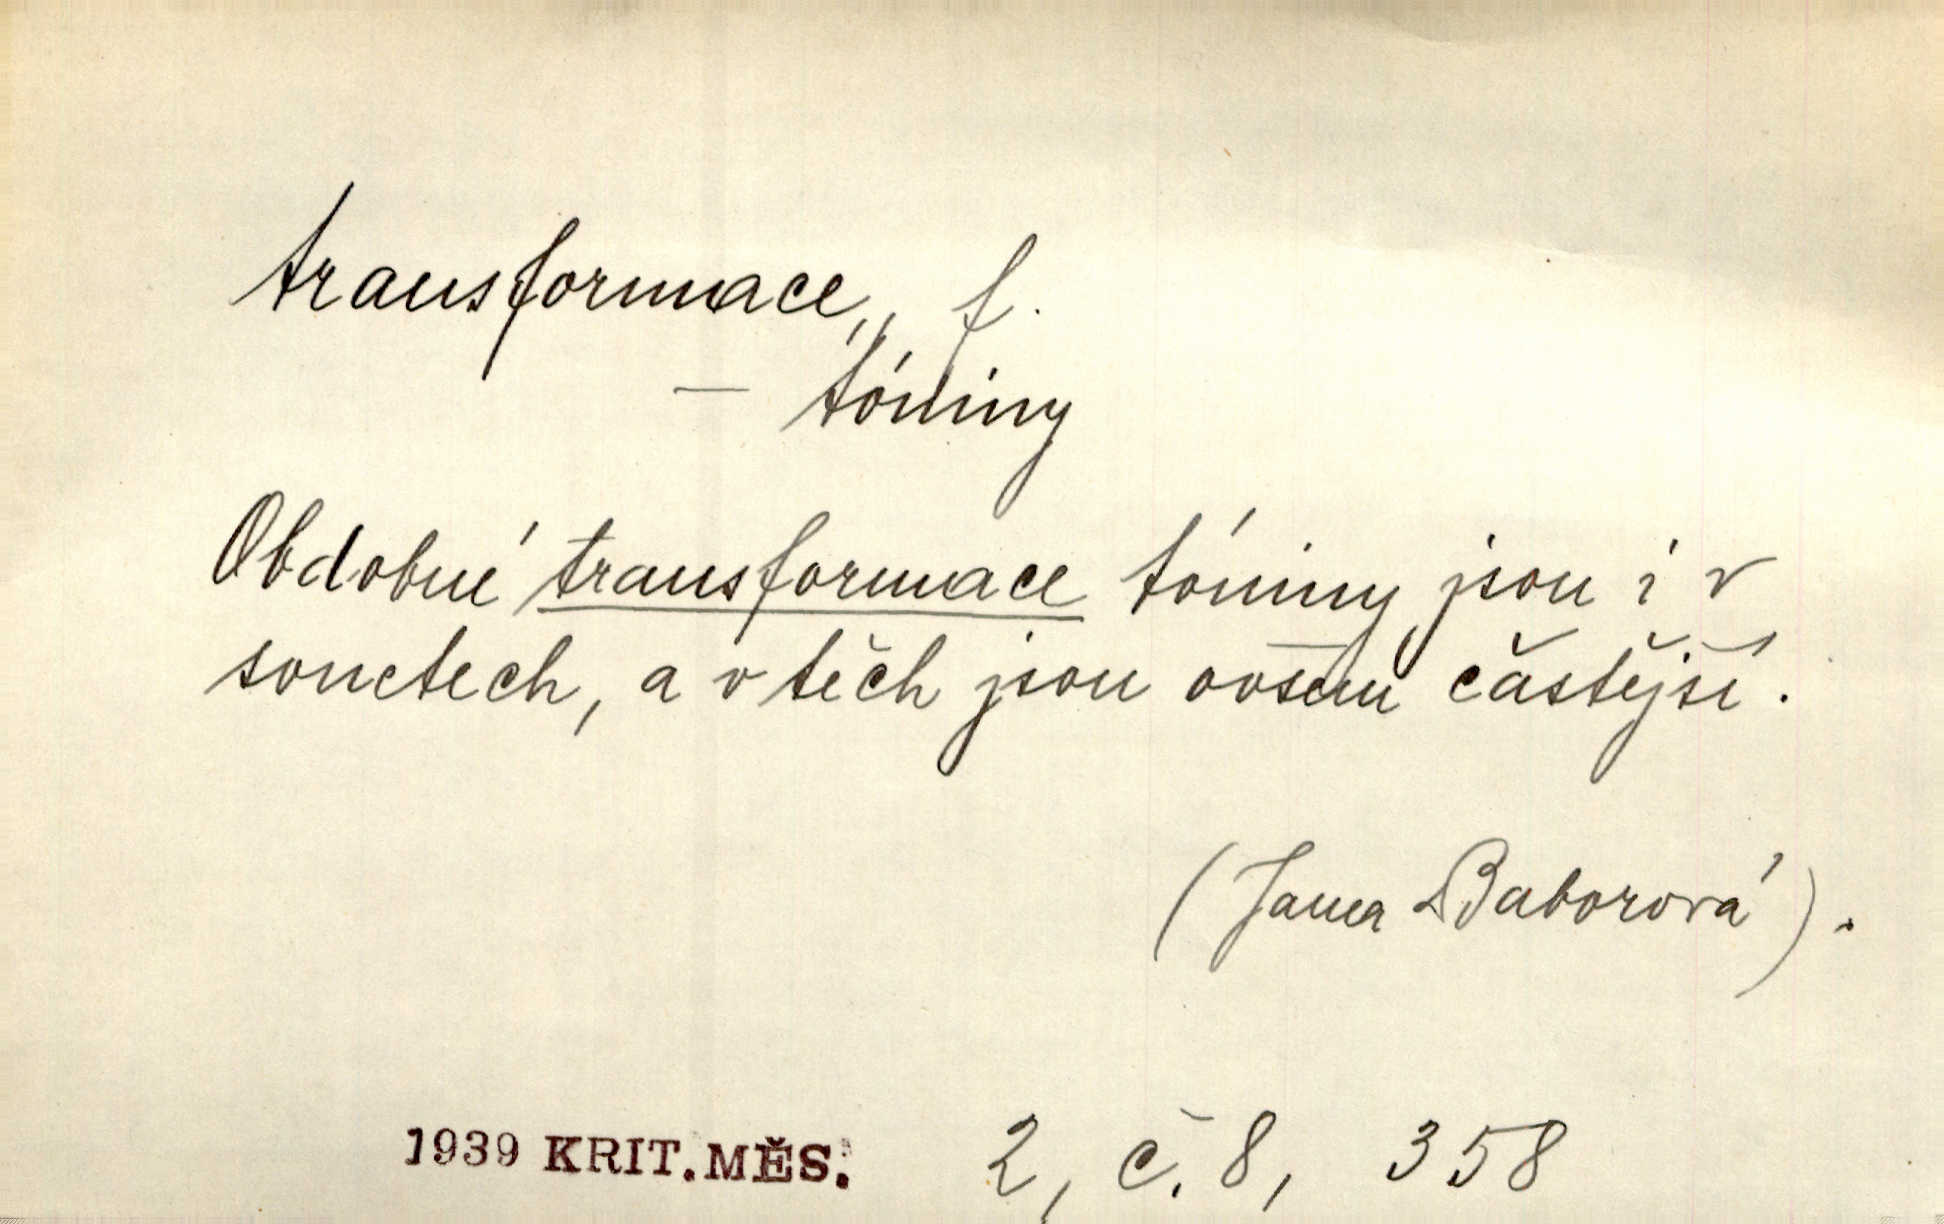 transformace, f.
— tóniny
Obdobné transformace tóniny jsou i v
sonetech, a v těch jsou ovšem častější.
(Jana Baborová).
1939 KRIT. MĚS. 2, č. 8, 358